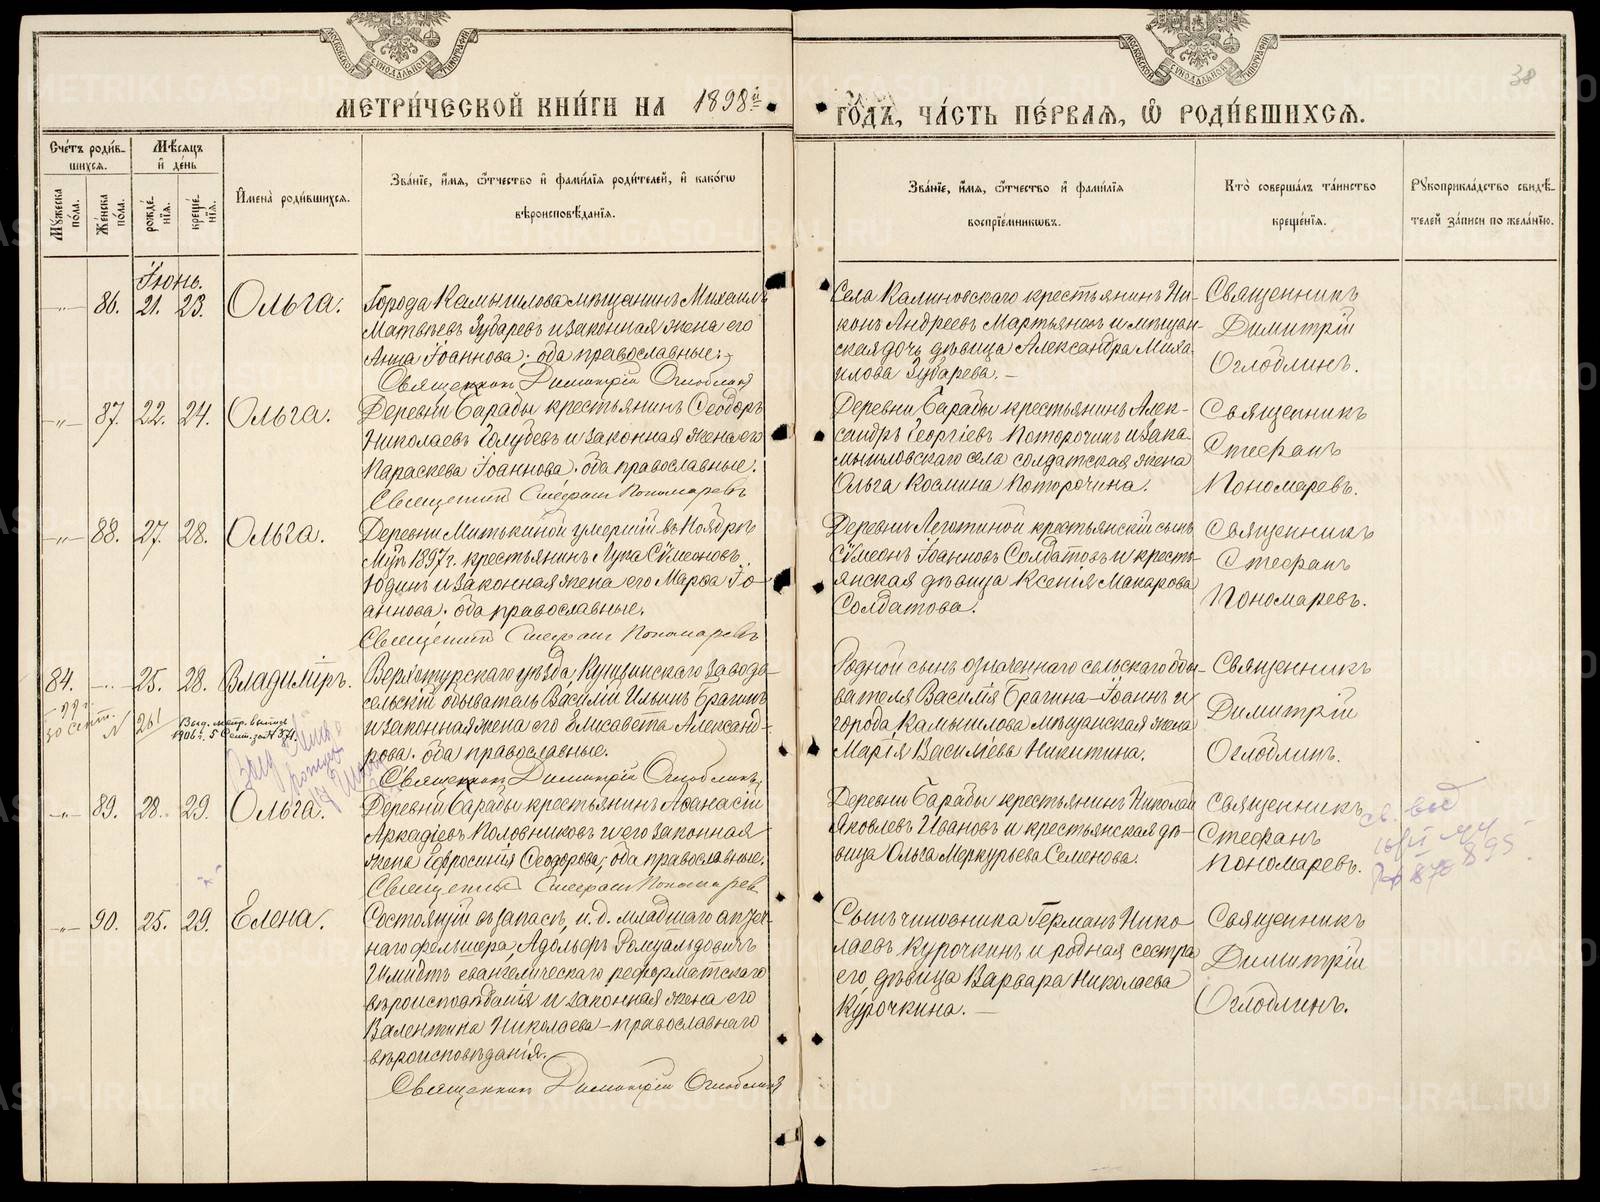 МЕТРИ́ЧЕСКОЙ КНИ́ГИ НА 1898й
ГО́ДЪ, ЧА́СТЬ ПЕ́РВАЯ, Ѡ҆ РОДИ́ВШИХСЯ.
38
Сче́тъ роди́в-
шихся.
Мѣ́сяцъ
и҆ де́нь
Мꙋ́жеска
по́ла.
Же́нска
по́ла.
рожде́-
нїя.
креще́-
нїя.
И҆мена̀ роди́вшихся.
Зва́нїе, и҆́мя, ѻ҆́тчество и҆ фами́лїя роди́телей, и҆ како́гѡ
вѣроисповѣ́данїя.
Зва́нїе, и҆́мя, ѻ҆́тчество и҆ фами́лїя
воспрїе́мникѡвъ.
Кто̀ соверша́лъ та́инство
креще́нїя.
Рꙋкоприкла́дство свидѣ́-
телей за́писи по жела́нїю.
Іюнь.
86. 21. 23. Ольга.
Города Камышлова мѣщанинъ Михаилъ
Матвѣевъ Зубаревъ и законная жена его
Анна Іоаннова. оба православные.
Священник Димитрій Оглоблин
Села Калиновскаго крестьянинъ Ни-
конъ Андреевъ Мартьянов и мѣщан-
ская дочь дѣвица Александра Миха-
илова Зубарева. —
Священникъ
Димитрій
Оглоблинъ.
87. 22. 24. Ольга.
Деревни Барабы крестьянинъ Ѳеодоръ
Николаевъ Голубевъ и законная жена его
Параскева Іоаннова. оба православные.
Священник Стефан Пономаревъ
Деревни Барабы крестьянинъ Алек-
сандръ Георгіевъ Поторочин и Зака-
мышловскаго села солдатская жена
Ольга Космина Поторочина.
Священникъ
Стефанъ
Пономаревъ.
88. 27. 28. Ольга.
Деревни Митькиной умершій въ Ноябрѣ
Мцѣ 1897 г. крестьянинъ Лука Сѵмеоновъ
Юдинъ и законная жена его Марѳа Іо-
аннова. оба православные.
Священник Стефан Пономаревъ
Деревни Леготиной крестьянскій сынъ
Сѵмеонъ Іоанновъ Солдатовъ и кресть-
янская дѣвица Ксенія Макарова
Солдатова.
Священникъ
Стефанъ
Пономаревъ.
84. 25. 28. Владиміръ.
Верхотурскаго уѣзда, Кушвинскаго завода
сельскій обыватель Василій Ильинъ Брагинъ
и законная жена его Елисавета Александ-
рова. оба православные.
Священник Димитрій Оглоблинъ
Родной сынъ означеннаго сельскаго обы-
вателя Василія Брагина — Іоаннъ и
города Камышлова мѣщанская жена
Марія Василіева Никитина.
Священникъ
Димитрій
Оглоблинъ.
30 сент. N 261
Выд. метр. выпись
1906 г. 5 Сент. за № 371.
89. 28. 29. Ольга.
Деревни Барабы крестьянинъ Аѳанасій
Аркадіевъ Половниковъ и его законная
жена Евфросинія Ѳеодорова, оба православные.
Священник Стефан Пономарев
Деревни Барабы крестьянинъ Николай
Яковлевъ Ивановъ и крестьянская дѣ-
вица Ольга Меркурьева Семенова.
Священникъ
Стефанъ
Пономаревъ.
90. 25. 29. Елена.
Состоящій въ запасѣ, и. д. младшаго аптеч-
наго фельшера, Адольфъ Ромуальдовичъ
Шмидтъ евангелическаго реформатскаго
вѣроисповѣданія и законная жена его
Валентина Николаева — православнаго
вѣроисповѣданія.
Священник Димитрій Оглоблин
Сынъ чиновника Германъ Нико-
лаевъ Курочкинъ и родная сестра
его дѣвица Варвара Николаева
Курочкина. —
Священникъ
Димитрій
Оглоблинъ.
METRIKI.GASO-URAL.RU